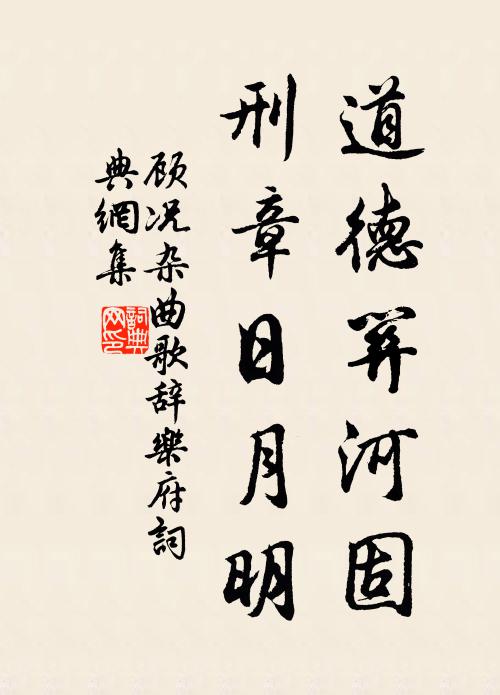 道德关河固
刑章日月明
顾况杂曲歌辞樂府詞
典網集
詞典
网印